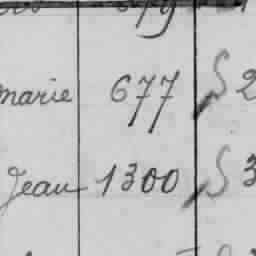 marie 677 S 2
Jean 1300 S 3